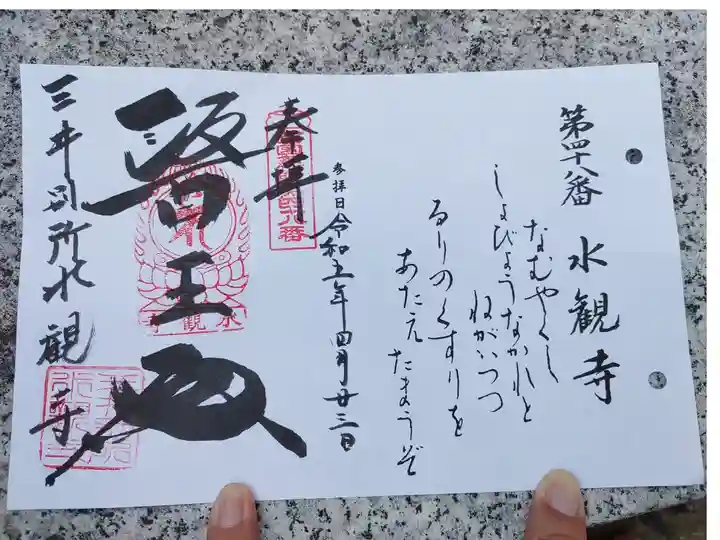 第四十八番 水観寺
なむやくし
しょびょうなかれと
ねがいつつ
るりのくすりを
あたえたまうぞ
参拝日 令和五年四月廿三日
奉拝
醫王殿
水観寺
三井別所水観寺